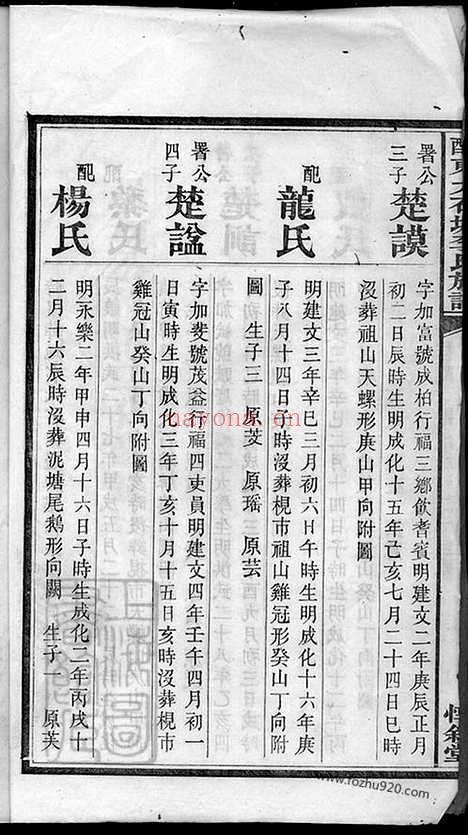 署公三子
楚謨
字加富號成柏行福三鄉飲耆賓明建文二年庚辰正月
初二日辰時生明成化十五年亡亥七月二十四日巳時
沒葬祖山天螺形庚山甲向附圖
配
龍氏
明建文三年辛巳三月初六日午時生明成化十六年庚
子八月十四日子時沒葬梘市祖山雞冠形癸山丁向附
圖 生子三 原芟 原瑤 原芸
署公四子
楚諡
字加斐號茂益行福四吏員明建文四年壬午四月初一
日寅時生明成化三年丁亥十月十五日亥時沒葬梘市
雞冠山癸山丁向附圖
配
楊氏
明永樂二年甲申四月十六日子時生成化二年丙戌十
二月十六辰時沒葬泥塘尾鵝形向闕 生子一 原芙
hayona.com
www.fozhu920.com